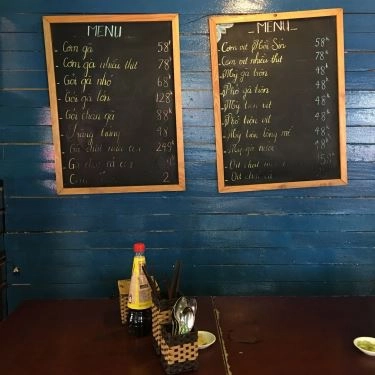 MENU
- Cơm gà 58k
- Cơm gà nhiều thịt 78k
- Gỏi gà nhỏ 68k
- Gỏi gà lớn 128k
- Gỏi chân gà 88k
- Tràng trứng 48
- Gà chặt nửa con 249k
- Gà chặt cả con
MENU
- Cơm vịt Phật Sơn 58k
- Cơm vịt nhiều thịt 78k
- Mỳ gà trộn 48k
- Phở gà trộn 48k
- Mỳ trộn vịt 48k
- Phở trộn vịt 48k
- Mỳ trộn lòng mề 48k
- Mỳ gà nước 48k
- Vịt chặt
- Vịt chặt